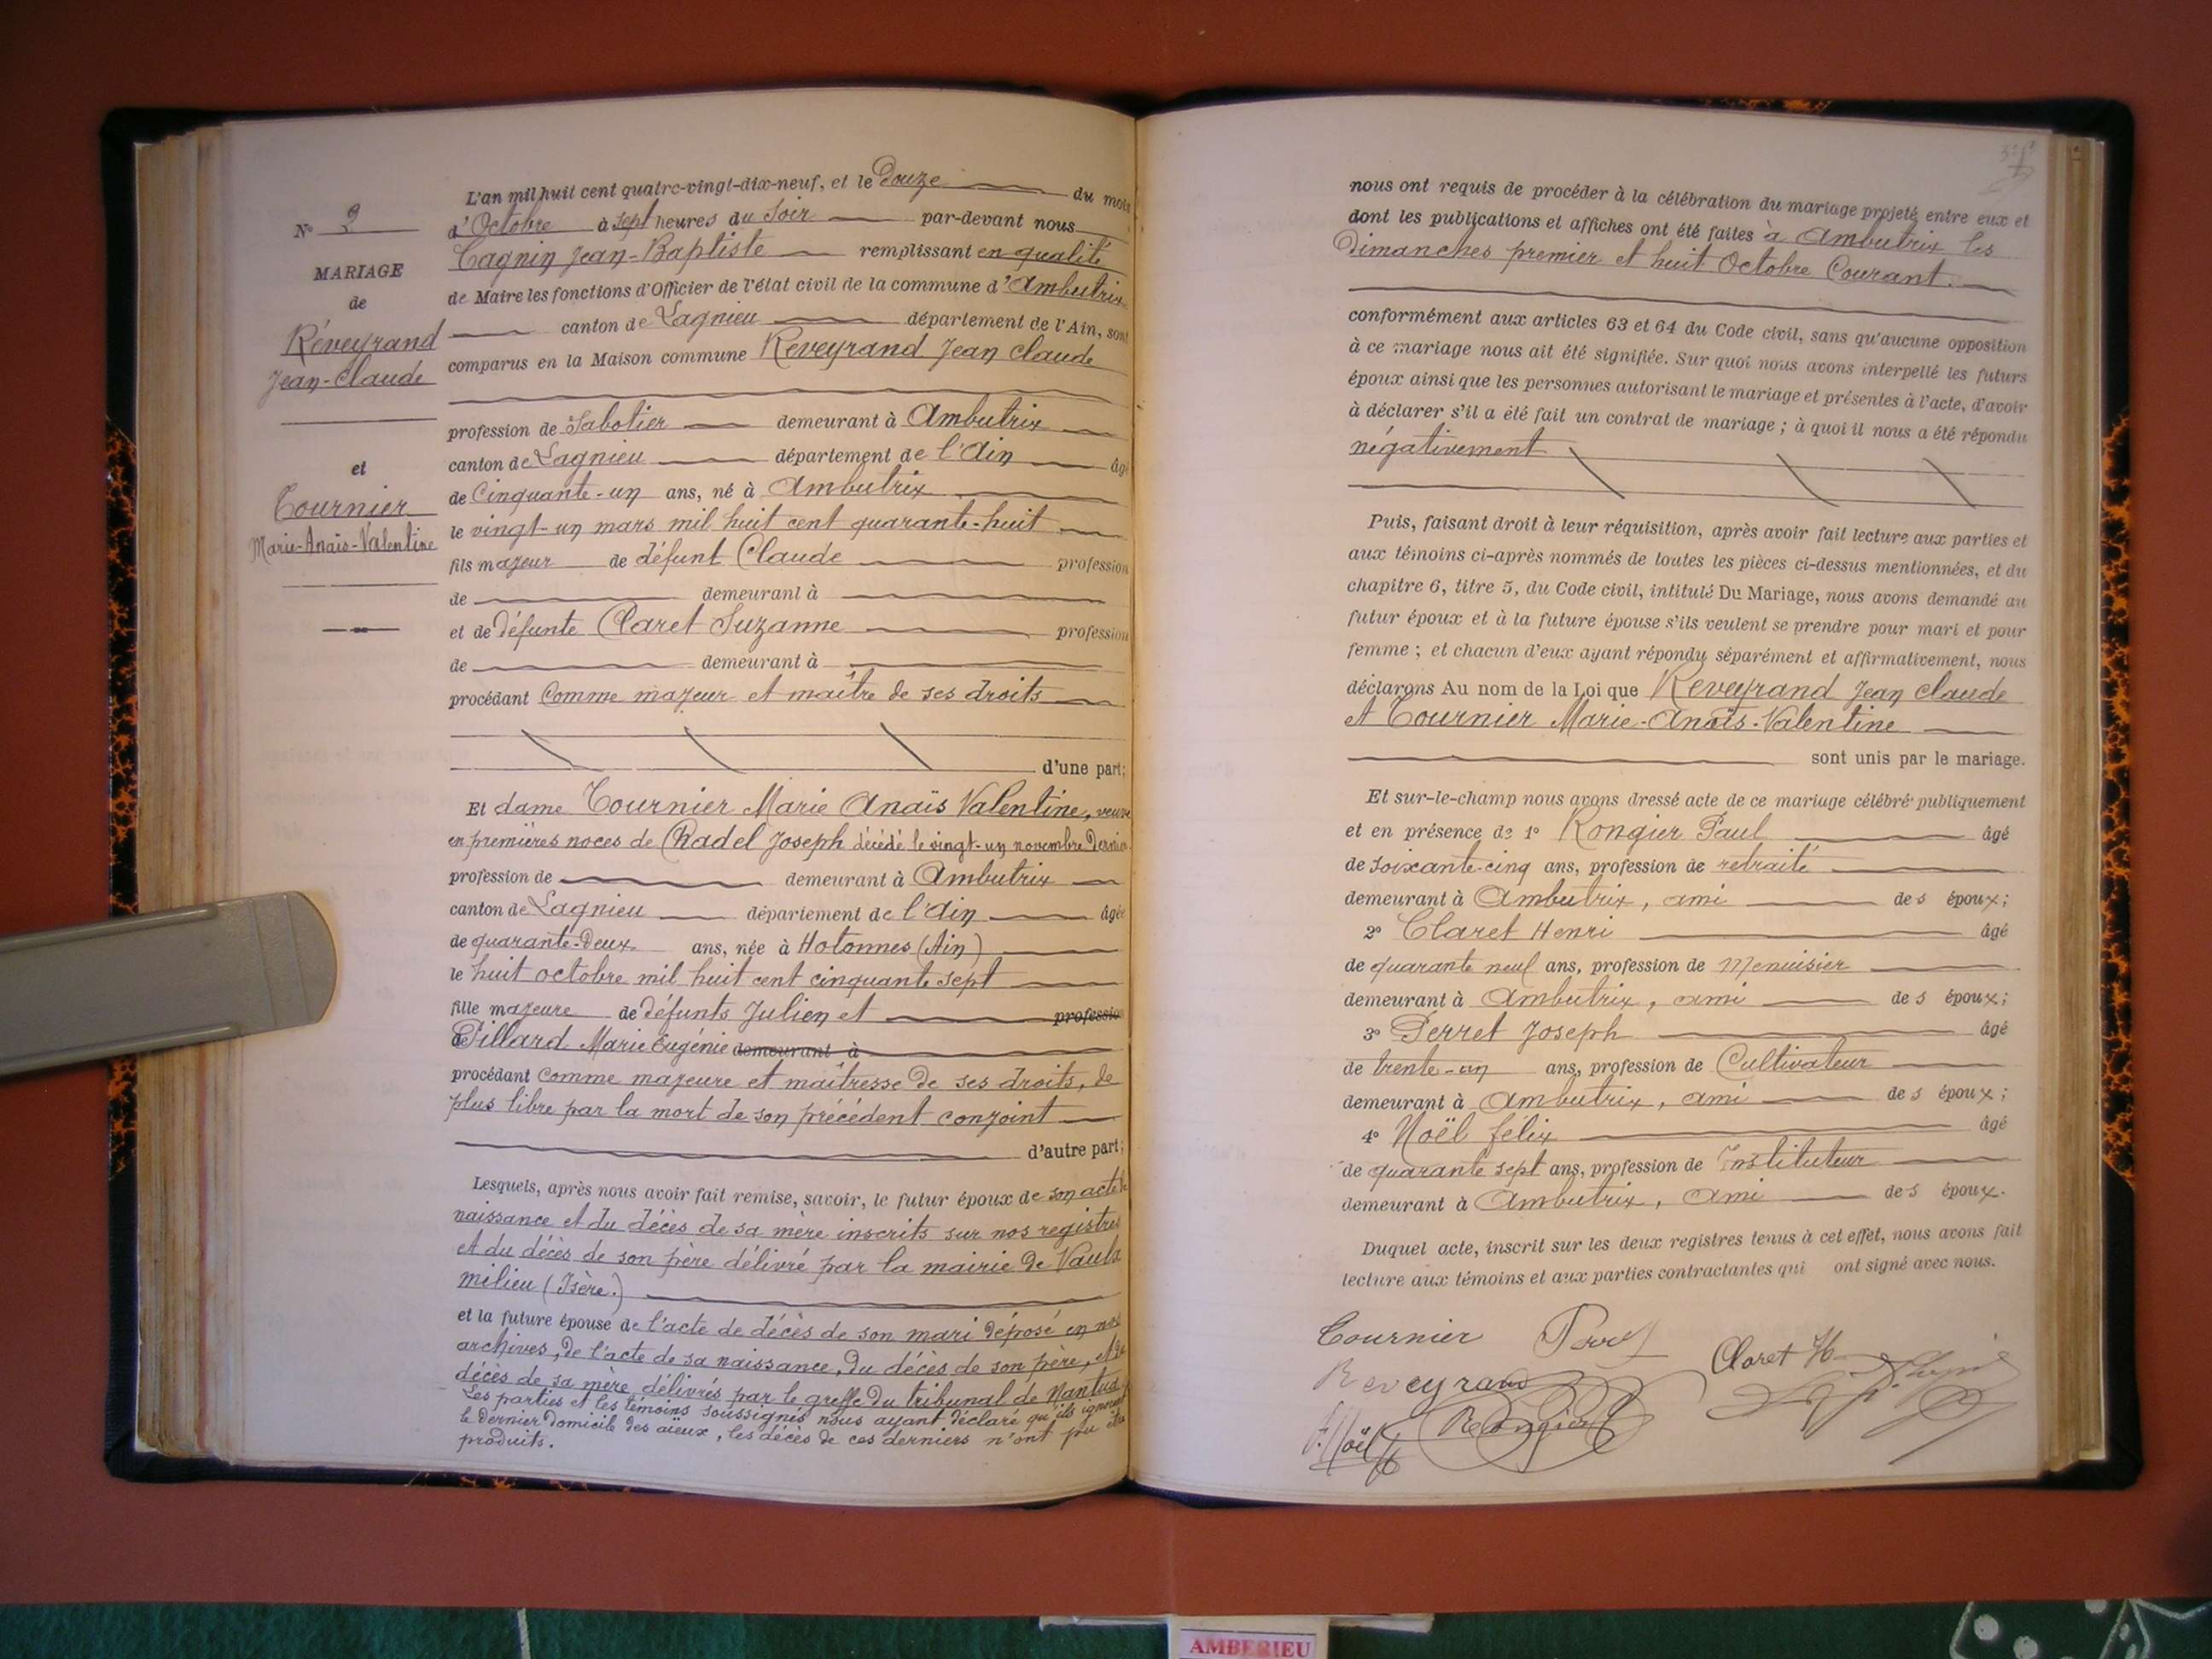 N° 2
MARIAGE
de
Réveyrand
Jean-Claude
et
Tournier
Marie-Anaïs-Valentine
L'an mil huit cent quatre-vingt-dix-neuf, et le Douze du mois
d'Octobre à sept heures du Soir par-devant nous
Cagnin Jean-Baptiste remplissant en qualité
de Maire les fonctions d'Officier de l'état civil de la commune d'Ambutrix
canton de Lagnieu département de l'Ain, sont
comparus en la Maison commune Reveyrand Jean Claude
profession de Sabotier demeurant à Ambutrix
canton de Lagnieu département de l'Ain âgé
de Cinquante-un ans, né à Ambutrix
le vingt-un mars mil huit cent quarante-huit
fils majeur de défunt Claude profession
de demeurant à
et de défunte Claret Suzanne profession
de demeurant à
procédant Comme majeur et maître de ses droits
d'une part;
Et dame Tournier Marie Anaïs Valentine, veuve
en premières noces de Chadel Joseph décédé le vingt-un novembre Dernier
profession de demeurant à Ambutrix
canton de Lagnieu département de l'Ain âgée
de quarante-Deux ans, née à Hotonnes (Ain)
le huit octobre mil huit cent cinquante sept
fille majeure de défunts Julien et profession
de Pillard Marie Eugénie demeurant à
procédant Comme majeure et maîtresse de ses droits, de
plus libre par la mort de son précédent conjoint
d'autre part;
Lesquels, après nous avoir fait remise, savoir, le futur époux de son acte de
naissance et du décès de sa mère inscrits sur nos registres
et du décès de son père délivré par la mairie de Vaulx
milieu (Isère.)
et la future épouse de l'acte de décès de son mari déposé en nos
archives, de l'acte de sa naissance, du décès de son père, et du
décès de sa mère délivrés par le greffe du tribunal de Nantua
Les parties et les témoins soussignés nous ayant déclaré qu'ils ignorent
le dernier domicile des aïeux, les décès de ces derniers n'ont pu être
produits.
nous ont requis de procéder à la célébration du mariage projeté entre eux et
dont les publications et affiches ont été faites à Ambutrix les
Dimanches premier et huit Octobre Courant.
conformément aux articles 63 et 64 du Code civil, sans qu'aucune opposition
à ce mariage nous ait été signifiée. Sur quoi nous avons interpellé les futurs
époux ainsi que les personnes autorisant le mariage et présentes à l'acte, d'avoir
à déclarer s'il a été fait un contrat de mariage ; à quoi il nous a été répondu
négativement
Puis, faisant droit à leur réquisition, après avoir fait lecture aux parties et
aux témoins ci-après nommés de toutes les pièces ci-dessus mentionnées, et du
chapitre 6, titre 5, du Code civil, intitulé Du Mariage, nous avons demandé au
futur époux et à la future épouse s'ils veulent se prendre pour mari et pour
femme ; et chacun d'eux ayant répondu séparément et affirmativement, nous
déclarons Au nom de la Loi que Reveyrand Jean Claude
et Tournier Marie-Anaïs-Valentine
sont unis par le mariage.
Et sur-le-champ nous avons dressé acte de ce mariage célébré publiquement
et en présence de 1° Rongier Paul âgé
de soixante-cinq ans, profession de retraité
demeurant à Ambutrix, ami des époux;
2° Claret Henri âgé
de quarante neuf ans, profession de Menuisier
demeurant à Ambutrix, ami des époux;
3° Perret Joseph âgé
de trente-un ans, profession de Cultivateur
demeurant à Ambutrix, ami des époux;
4° Noël félix âgé
de quarante sept ans, profession de Instituteur
demeurant à Ambutrix, ami des époux.
Duquel acte, inscrit sur les deux registres tenus à cet effet, nous avons fait
lecture aux témoins et aux parties contractantes qui ont signé avec nous.
Tournier
Claret H
Reveyrand
F. Noël Rongier
AMBERIEU